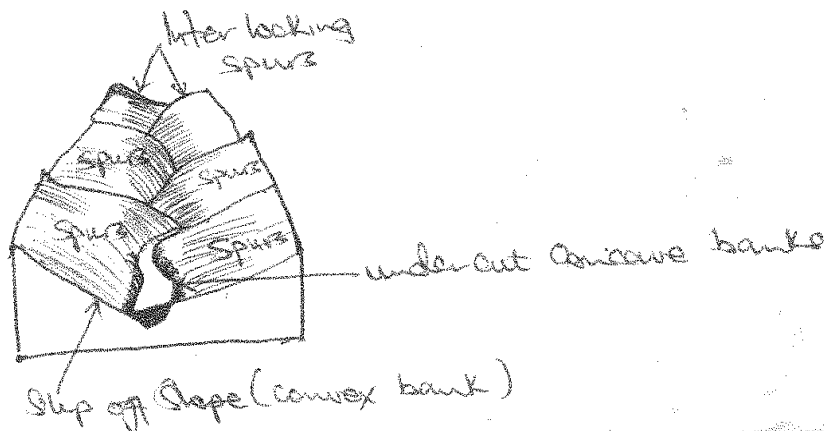 Inter locking
spurs
spurs
spurs
spurs
spurs
under cut Concave banks
Slip off Slope (convex bank)